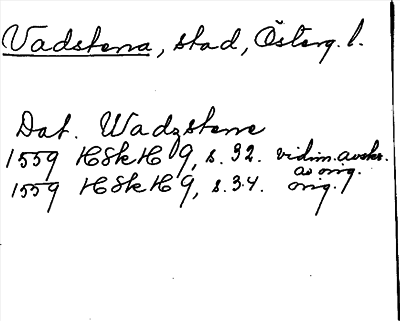 Vadstena, stad, Österg. l.
Dat. Wadzstene
1559 HSkH 9, s. 32. vidim. avskr. av orig.
1559 HSkH 9, s. 34. orig.